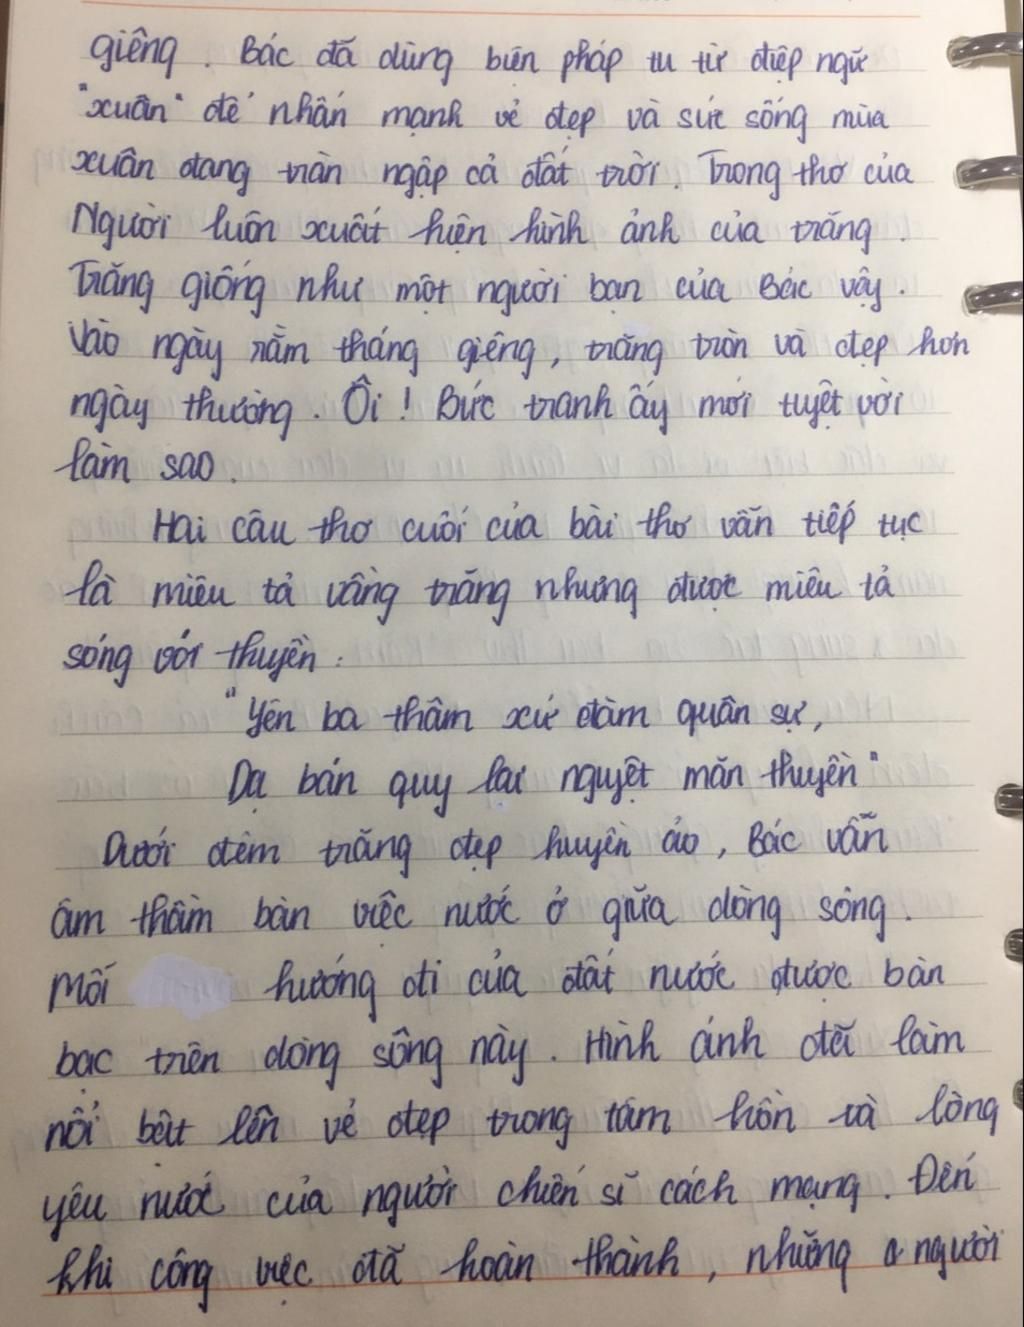 giêng. Bác đã dùng biện pháp tu từ điệp ngữ
"xuân" để nhấn mạnh vẻ đẹp và sức sống mùa
xuân đang tràn ngập cả đất trời. Trong thơ của
Người luôn xuất hiện hình ảnh của trăng.
Trăng giống như một người bạn của Bác vậy.
Vào ngày rằm tháng giêng, trăng tròn và đẹp hơn
ngày thường. Ôi! Bức tranh ấy mới tuyệt vời
làm sao.
Hai câu thơ cuối của bài thơ vẫn tiếp tục
là miêu tả vầng trăng nhưng được miêu tả
sóng với thuyền:
"Yên ba thâm xứ đàm quân sự,
Dạ bán quy lai nguyệt mãn thuyền"
Dưới đêm trăng đẹp huyền ảo, Bác vẫn
âm thầm bàn việc nước ở giữa dòng sông.
Mỗi hướng đi của đất nước được bàn
bạc trên dòng sông này. Hình ảnh đã làm
nổi bật lên vẻ đẹp trong tâm hồn và lòng
yêu nước của người chiến sĩ cách mạng. Đến
khi công việc đã hoàn thành, những người